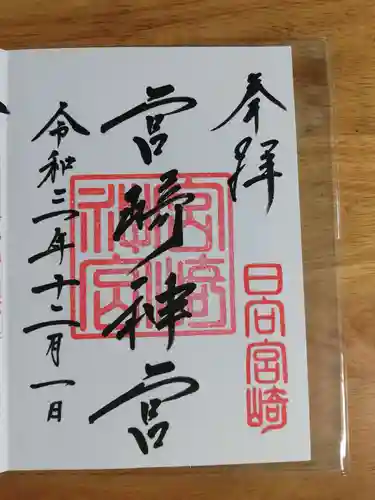 奉拝
日向宮崎
宮﨑神宮
宮崎神宮
令和三年十二月一日